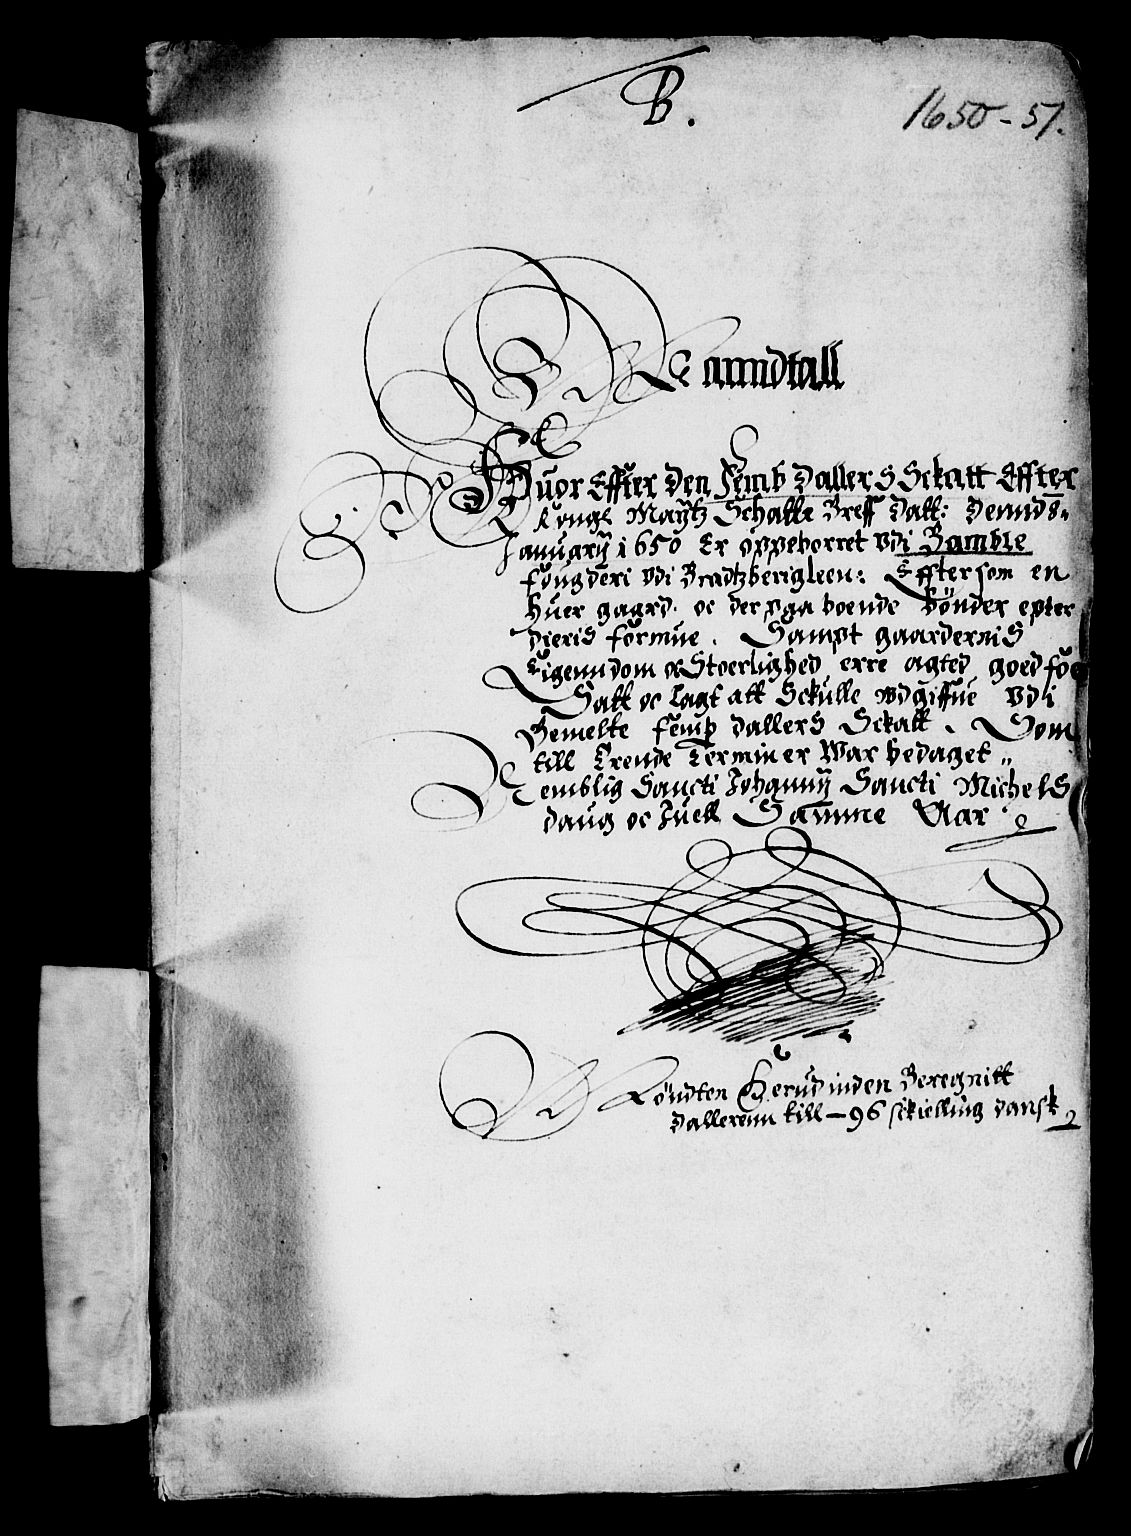 B.
1650-51.
Manndtall
Huor Effter den Femb Dallers Sckatt Effter
Kongl Maÿtz Schatte Breff Datt: Dennd 8.
Januarÿ 1650 Er oppeborret Vdi Bamble
fougderi vdi Bradtzberigleen: Effter som en
huer gaard. oc der paa boende bönder epter
dieris formue. Sampt gaardernis
Eigenndom oc Stoerlighed erre agted goed for
Satt oc lagt att Sckulle vdgiffue Vdi
Bemelte femp dallers Sckatt. Som
till Trende Terminer War bedaget
Nemblig Sancti Johannÿ Sancti Michels
daug oc Juell Samme Aar
Möndten Herudinden Beregnitt
Dallerenn till - 96 sckielling dansk